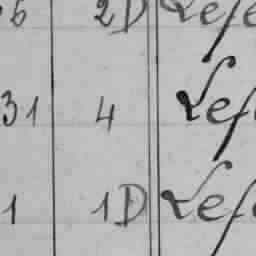 6 2D Lefe
31 4 Lef
1 1D Lefe